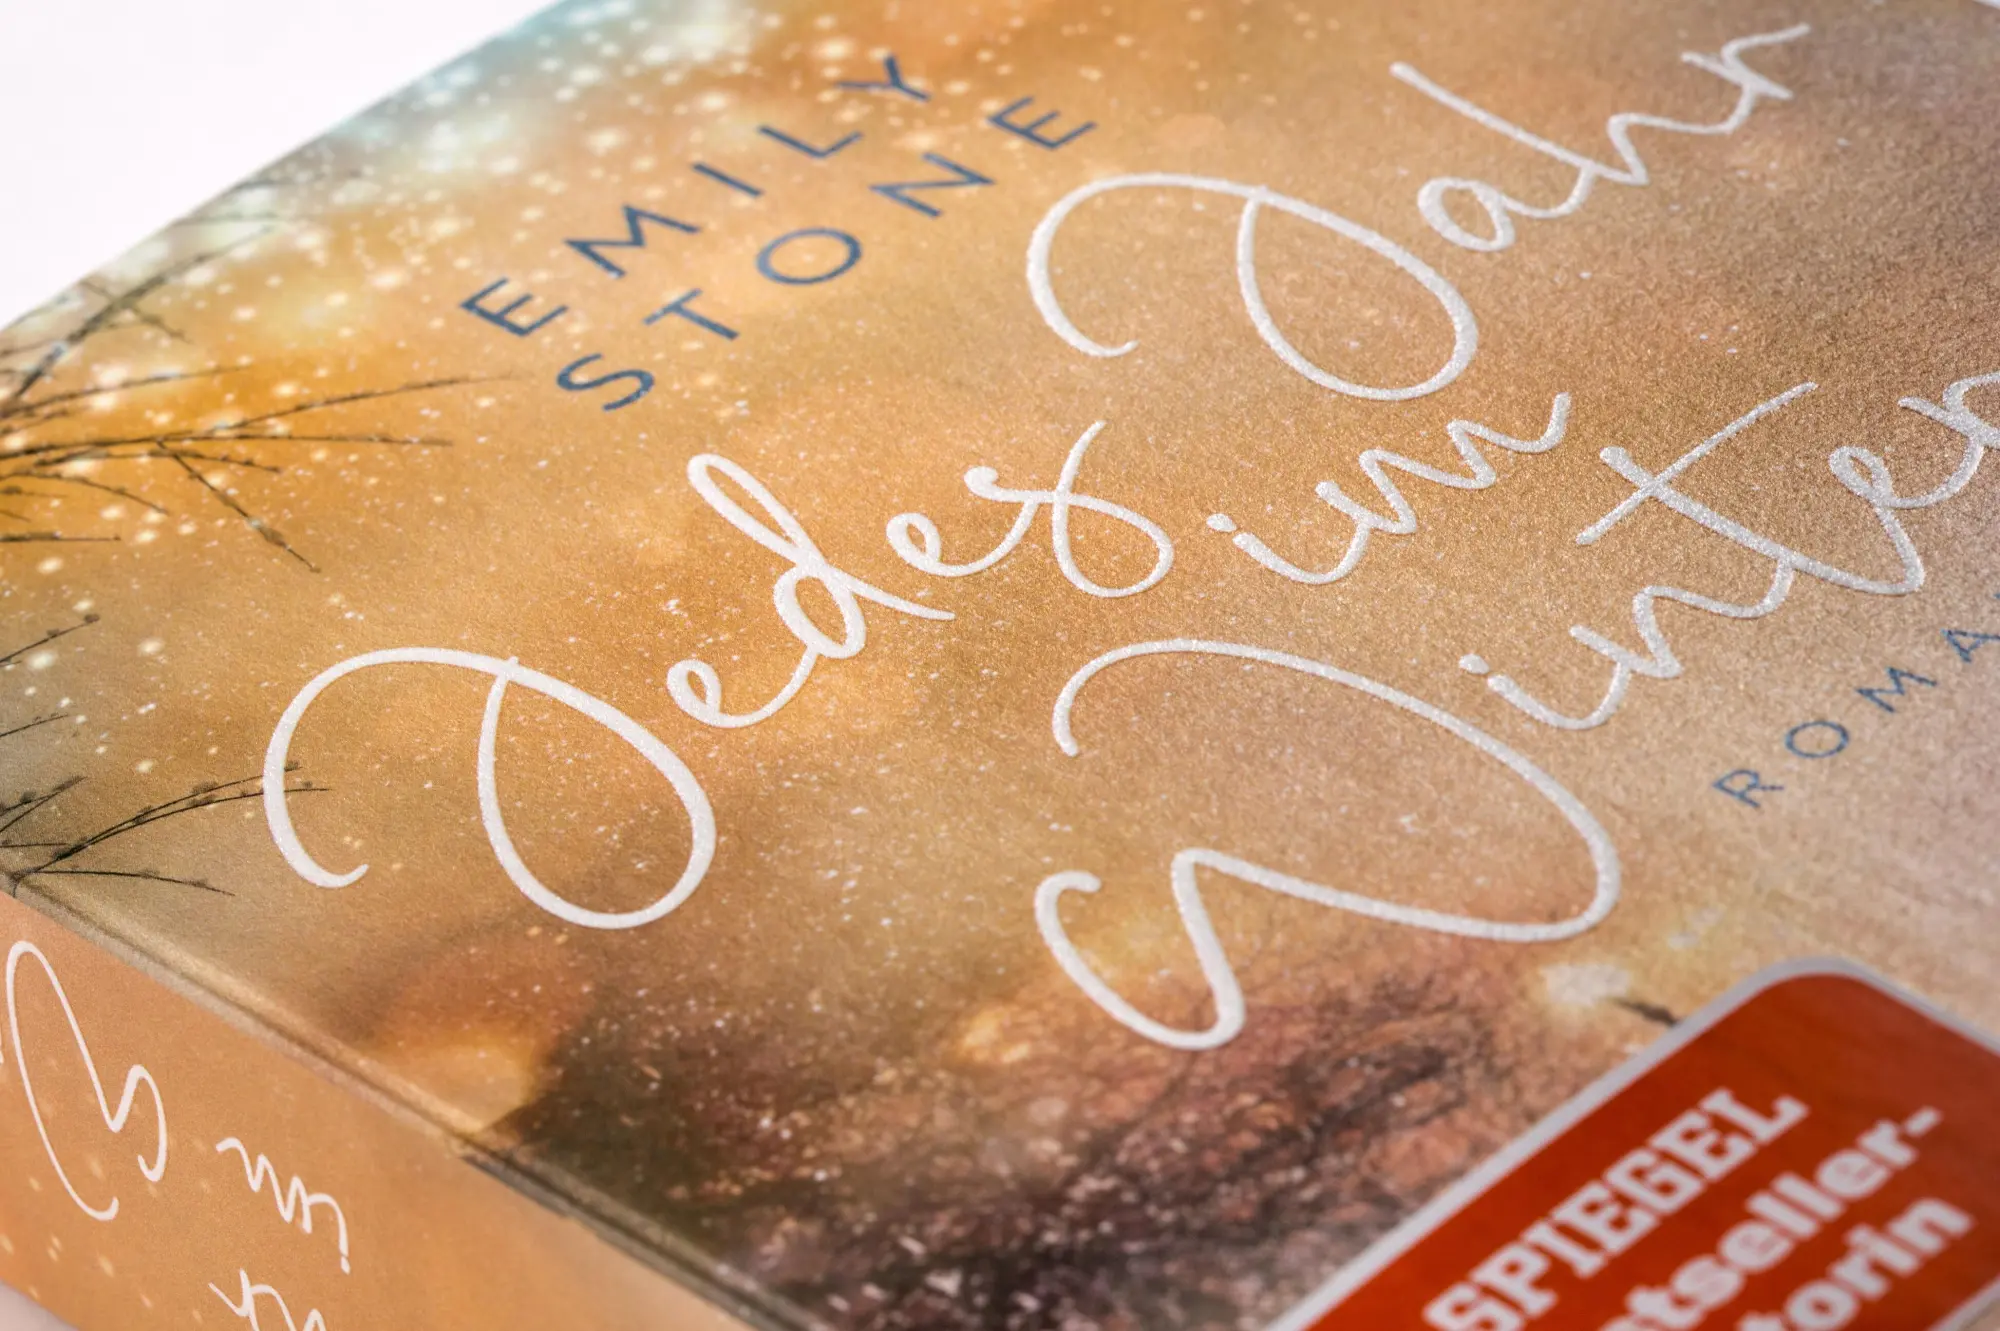 EMILY
STONE
Jedes Jahr
im
Winter
ROMA
SPIEGEL
tseller-
torin
im